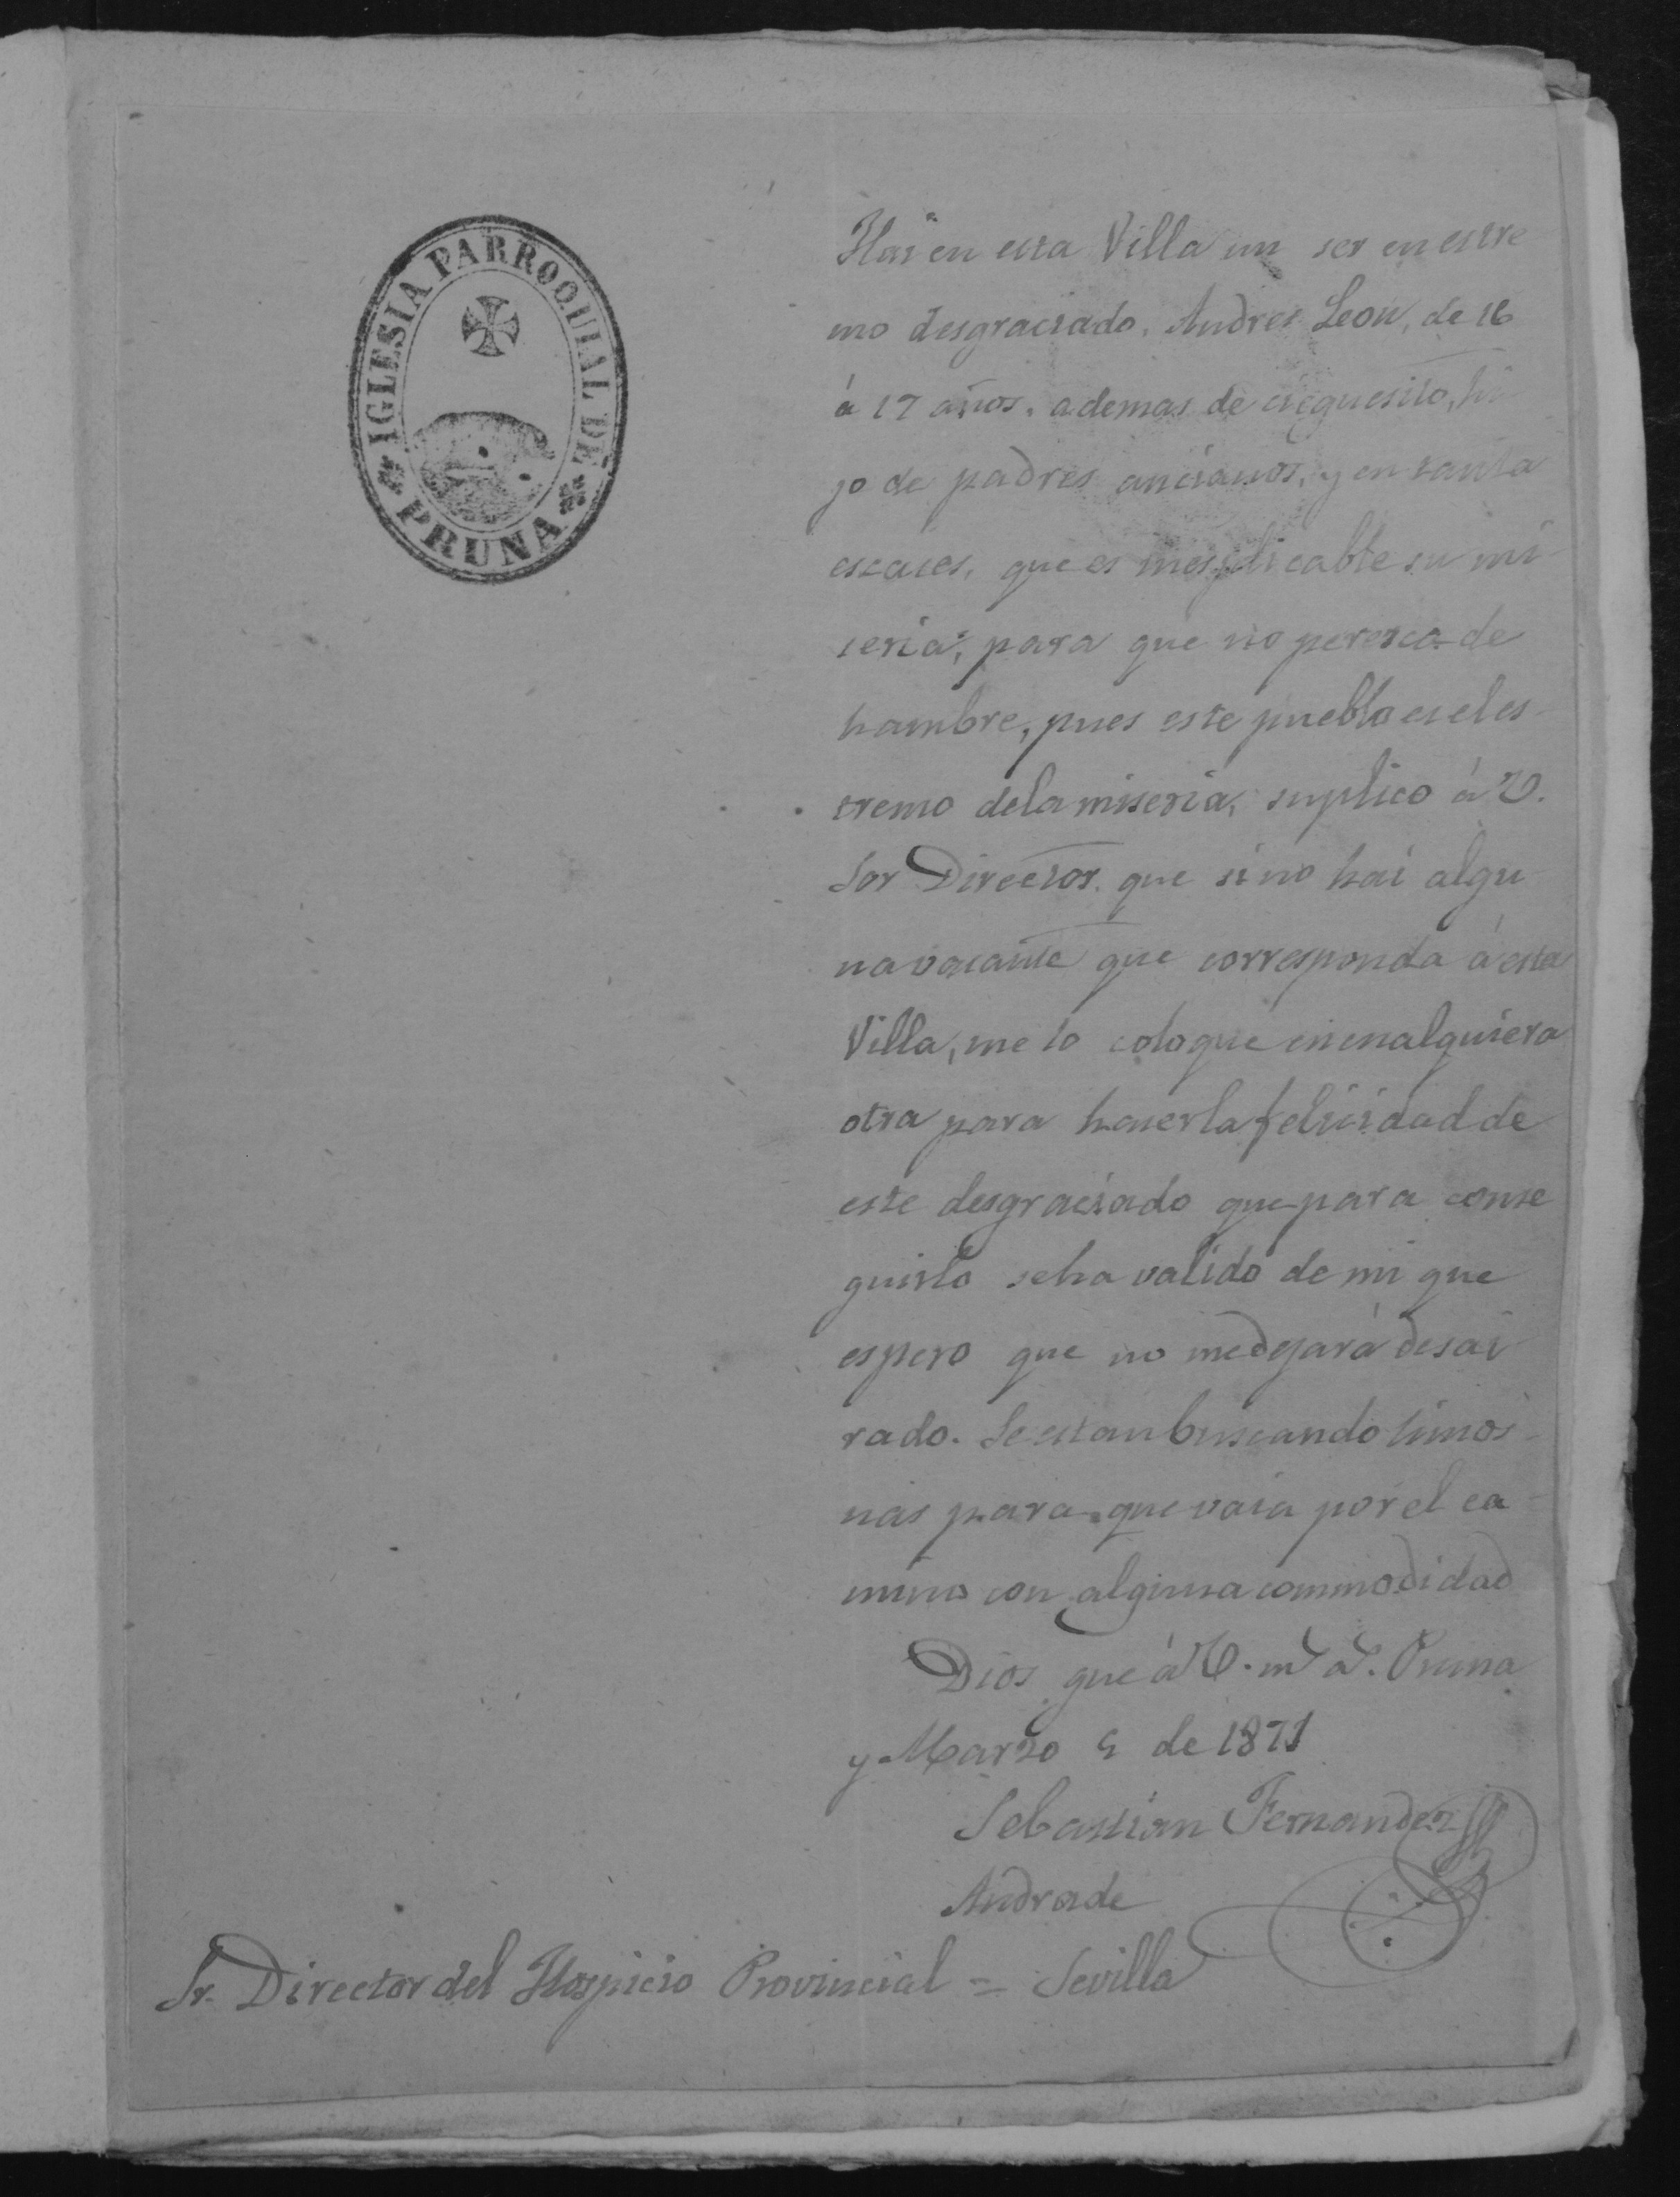 IGLESIA PARROQUIAL DE
PRUNA
Hai en esta Villa un ser en estre
mo desgraciado. Andres Leon, de 16
á 17 años, ademas de cieguesito, hi
jo de padres ancianos, y en tanta
escases, que es inesplicable su mi
seria; para que no peresca de
hambre, pues este pueblo es el es-
tremo de la miseria, suplico á V.
Sor Director. que si no hai algu
na vacante que corresponda á esta
Villa, me lo coloque en cualquiera
otra para haser la felicidad de
este desgraciado que para conse
guirlo se ha valido de mi que
espero que no me dejará desai
rado. Se estan buscando limos-
nas para que vaia por el ca-
mino con alguna commodidad
Dios gue á V. m. a. Pruna
y Marzo 5 de 1871
Sebastian Fernandez
Andrade
Sr. Director del Hospicio Provincial = Sevilla